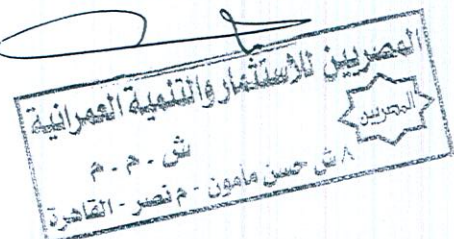 المصريين للاستثمار والتنمية العمرانية
المصريين
ش . م . م
٨ ش حسن مأمون - م نصر - القاهرة